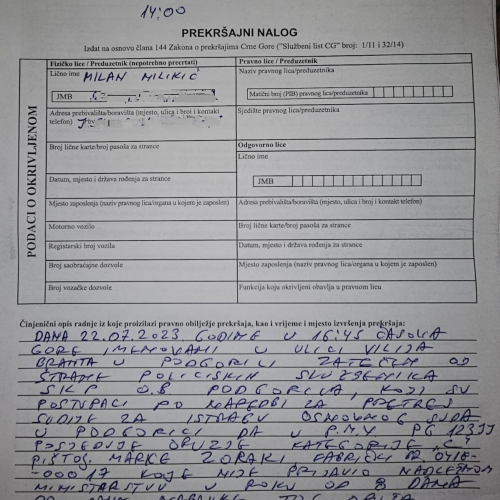 14:00
PREKRŠAJNI NALOG
Izdat na osnovu člana 144 Zakona o prekršajima Crne Gore ("Službeni list CG" broj: 1/11 i 32/14)
PODACI O OKRIVLJENOM
Fizičko lice / Preduzetnik (nepotrebno precrtati)
Lično ime MILAN MILIKIĆ
JMB
Adresa prebivališta/boravišta (mjesto, ulica i broj i kontakt telefon)
Broj lične karte/broj pasoša za strance
Datum, mjesto i država rođenja za strance
Mjesto zaposlenja (naziv pravnog lica/organa u kojem je zaposlen)
Motorno vozilo
Registarski broj vozila
Broj saobraćajne dozvole
Broj vozačke dozvole
Pravno lice / Preduzetnik
Naziv pravnog lica/preduzetnika
Matični broj (PIB) pravnog lica/preduzetnika
Sjedište pravnog lica/preduzetnika
Odgovorno lice
Lično ime
JMB
Adresa prebivališta/boravišta (mjesto, ulica i broj i kontakt telefon)
Broj lične karte/broj pasoša za strance
Datum, mjesto i država rođenja za strance
Mjesto zaposlenja (naziv pravnog lica/organa u kojem je zaposlen)
Funkcija koju okrivljeni obavlja u pravnom licu
Činjenični opis radnje iz koje proizilazi pravno obilježje prekršaja, kao i vrijeme i mjesto izvršenja prekršaja:
DANA 22.07.2023 GODINE U 16:45 ČASOVA
GORE IMENOVANI U ULICI VILIJA
BRANTA U PODGORICI ZATEČEN OD
STRANE POLICISKIH SLUŽBENIKA
O.B PODGORICA, KOJI SU
POSTUPALI PO NAREDBI ZA PRETRES
SUDIJE ZA ISTRAGU OSNOVNOG SUDA
U PODGORICI DA U P.M.V PG
POSJEDUJE ORUŽJE KATEGORIJE „C"
PIŠTOLJ MARKE ZORAKI FABRIČKI BR
-00017 KOJE NIJE PRIJAVIO NADLEŽNOM
MINISTARSTVU U ROKU OD 8 DANA
OD DANA NABAVKE